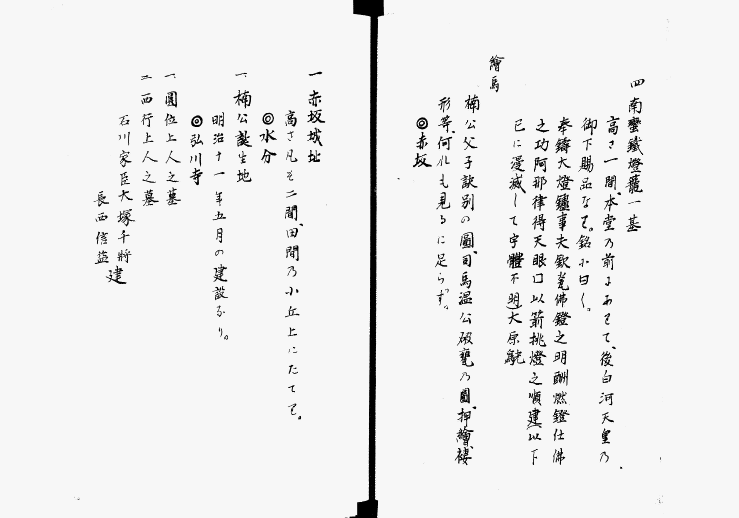 四 南蠻鐵燈籠一基
高さ一間、本堂の前にあそて、後白河天皇の
御下賜品なそ。銘に曰く。
奉鑄大燈鑪事夫欽惟佛燈之明酬燃鐙仕佛
之功阿那律得天眼口以箭挑燈之順逮(以下
已に漫滅して字體不明)大原毓
繪馬
楠公父子訣別の圖、司馬温公破甕の圖、押繪、褸
形等、何れも見るに足らず。
◎赤坂
一 赤坂城址
高さ凡そ二間、田間の小丘上にたてそ。
◎水分
一、楠公誕生地
明治十一年五月の建設なり。
◎弘川寺
一、圓位上人之墓
二 西行上人之墓
石川家臣大塚千將建
長西信盜